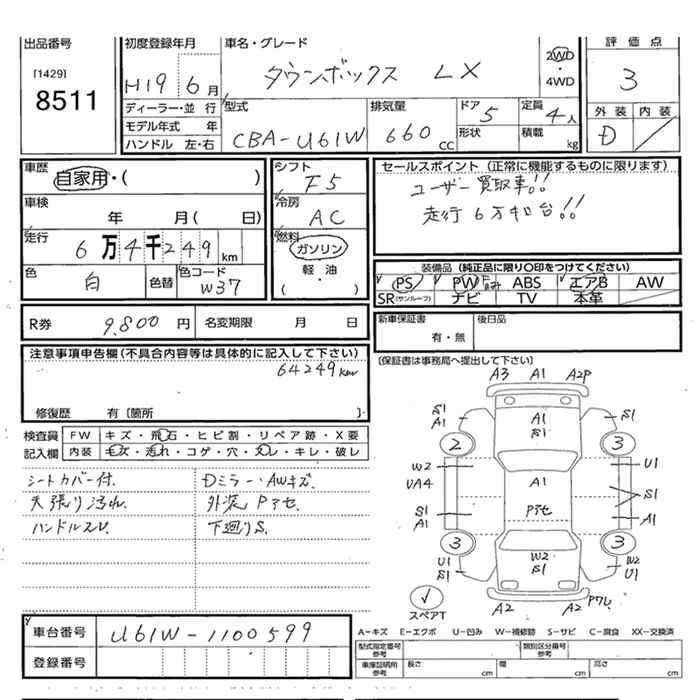 出品番号 初度登録年月 車名・グレード 評価点
[1429] H19 6月 タウンボックス LX 2WD・4WD 3
8511
ディーラー・並行 型式 排気量 ドア 定員 外装 内装
モデル年式 年 CBA-U61W 660cc 5 4人 D
ハンドル 左・右 形状 積載 kg
車歴 シフト セールスポイント (正常に機能するものに限ります)
自家用・( ) F5 ユーザー買取車!!
車検 冷房 走行6万キロ台!!
年 月( 日) AC
走行 燃料
6万4千249km ガソリン 装備品 (純正品に限り○印をつけてください)
色 色替 色コード 軽・油 PS PW ABS エアB AW
白 W37 ( ) SR(サンルーフ) ナビ TV 本革
R券 9.800円 名変期限 月 日 新車保証書 後日品
有・無
注意事項申告欄(不具合内容等は具体的に記入して下さい) [保証書は事務局へ提出して下さい]
64249km
修復歴 有〔箇所 〕
検査員 FW キズ・飛石・ヒビ割・リペア跡・X要
記入欄 内装 モズ・汚れ・コゲ・穴・スレ・キレ・破レ
シートカバー付. Dミラー・AWキズ.
天張り汚れ. 外装Pアセ
ハンドルスレ. 下廻りS.
A3 A1 A2P
S1 A1 S1
A1 S1
2 3
W2 A1 U1
UA4 S1
S1 Pアセ A1
A1
3 3
U1 W2 W2
S1 S1 U1
スペアT A2 A2 Pワレ
A-キズ E-エクボ U-凹み W-補修跡 S-サビ C-腐食 XX-交換済
車台番号 U61W-1100599
登録番号
型式指定番号 参考 類別区分番号 参考
車庫証明用 参考 長さ cm 幅 cm 高さ cm